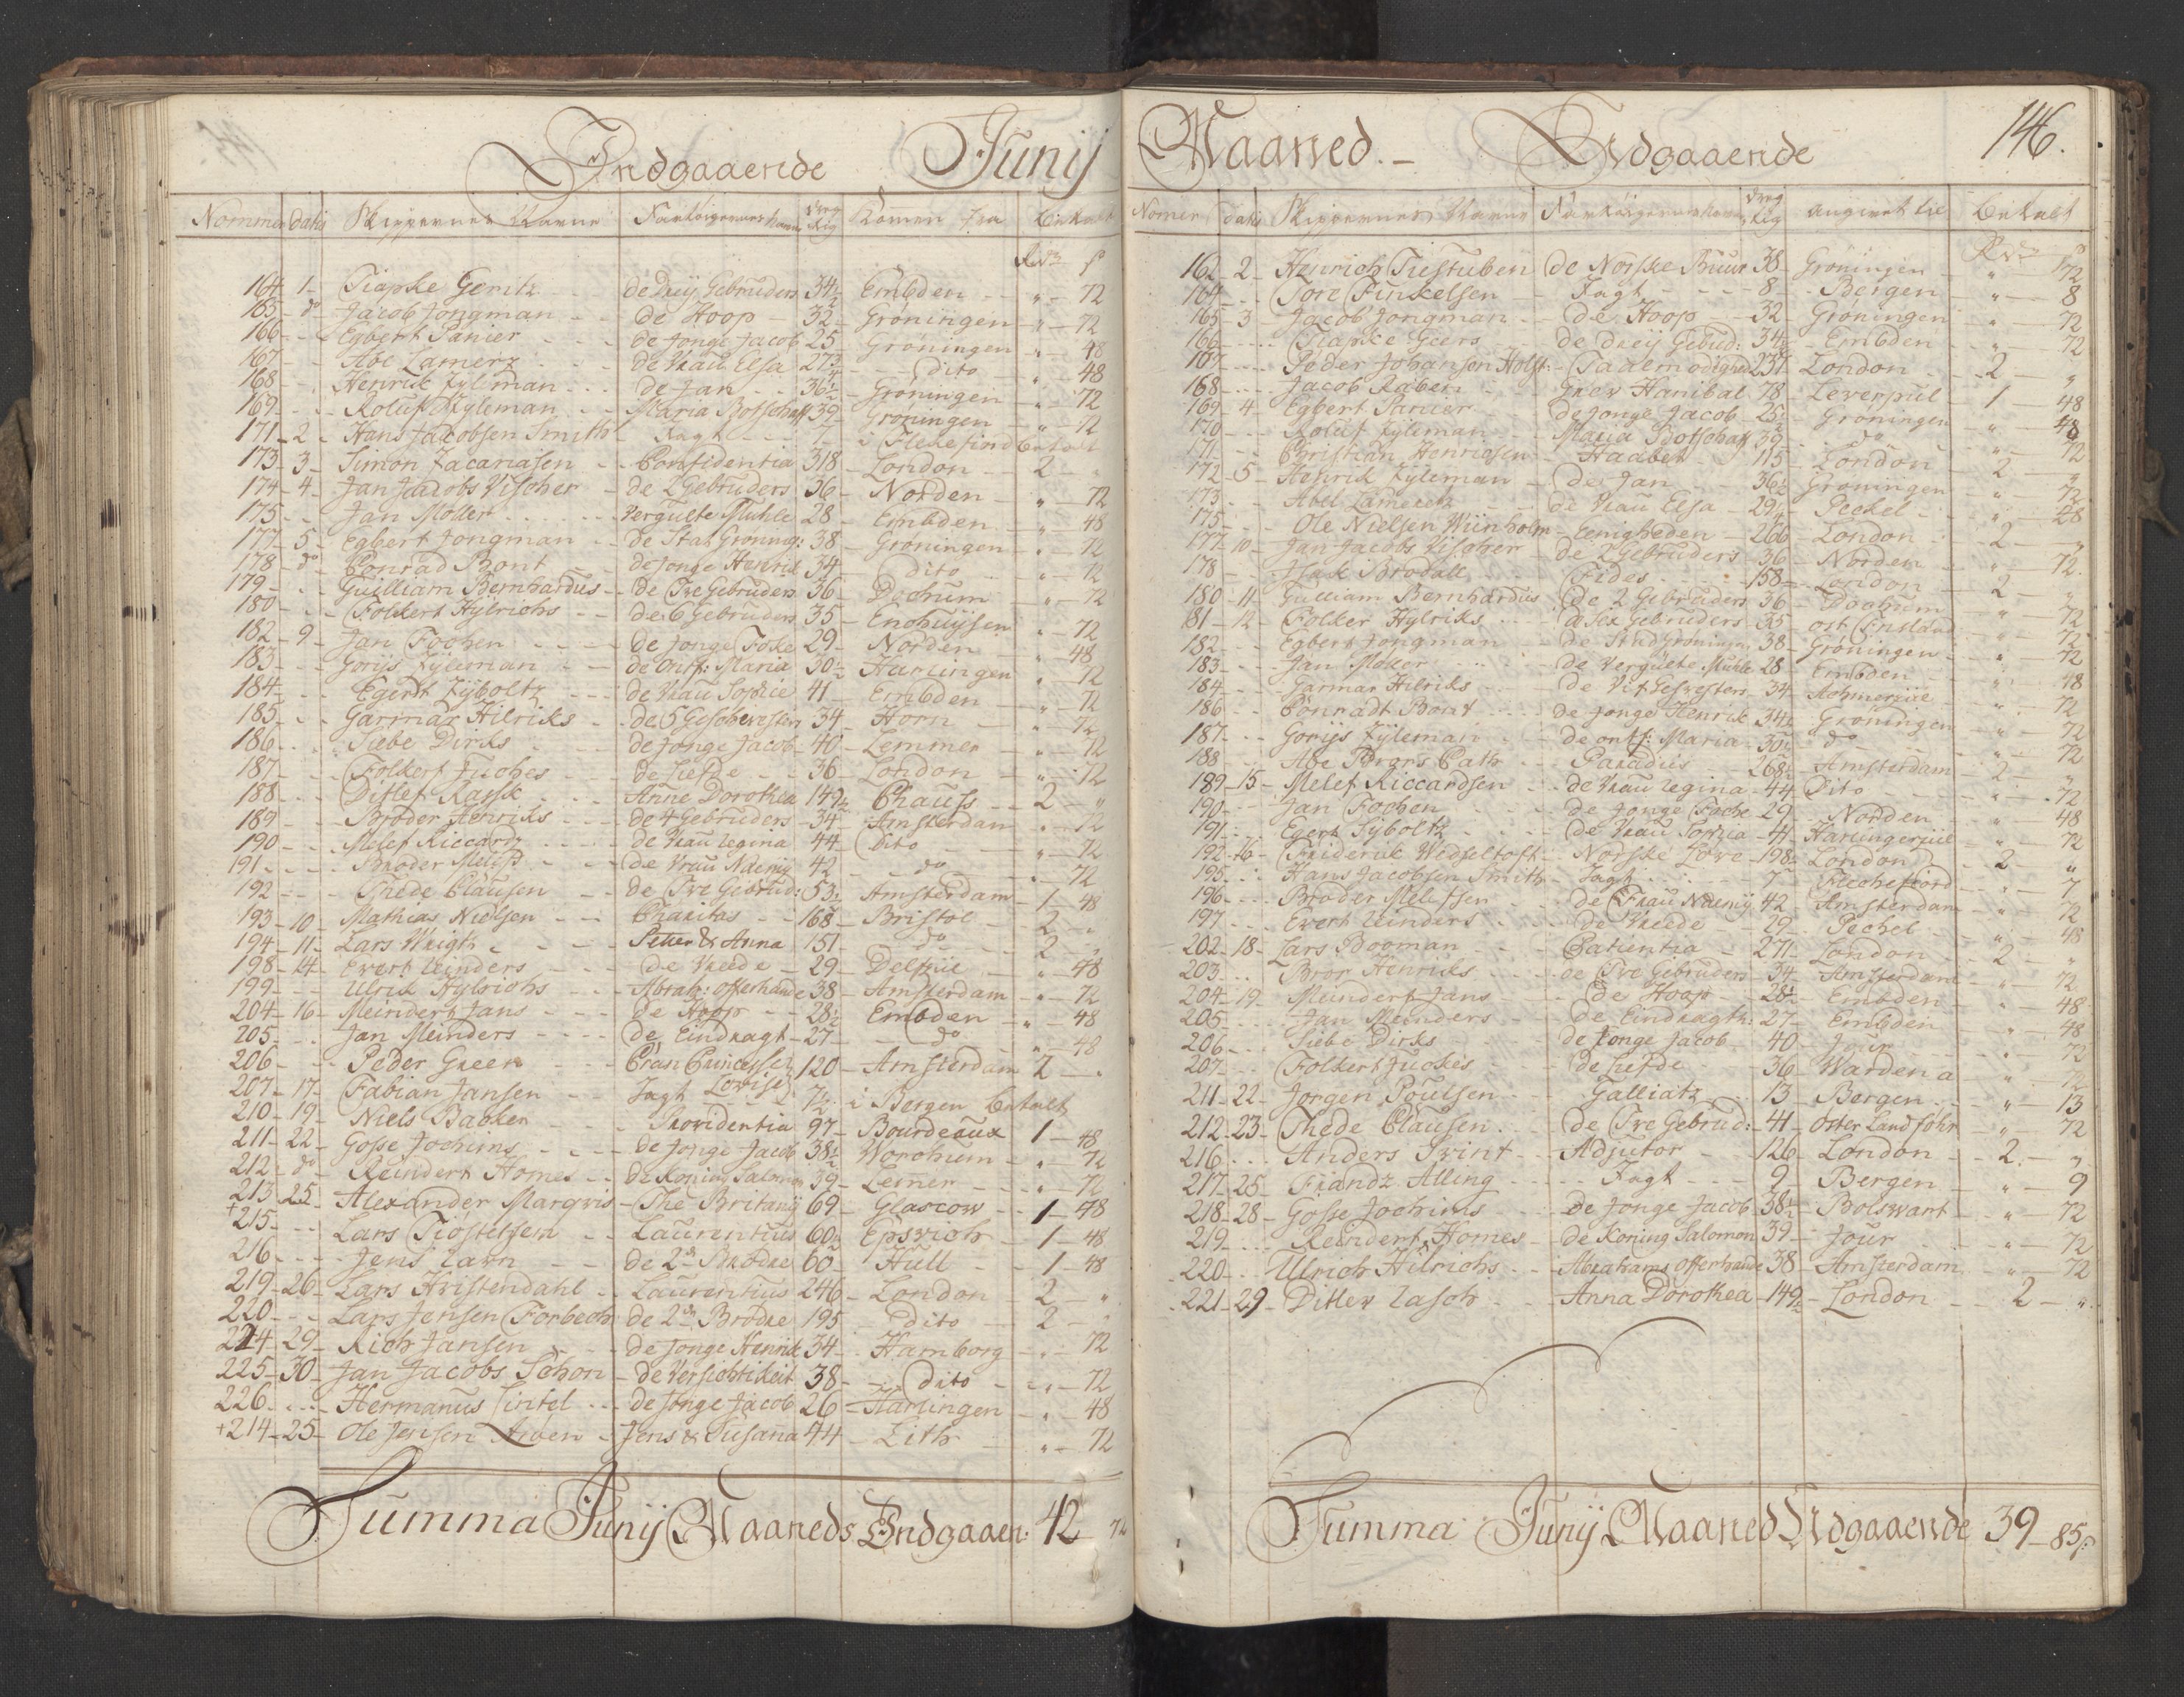 Indgaaende Junij
Nommer datis Skippernes Nafne Fartøigernes Nafne dreg tig komen fra betalt
Rdr ß
164 1 Tiapke Gerritz de dreij Gebruders 34½ Embden " 72
165 do Jacob Jongman de Hoop 32 Groningen " 72
166 Egbert Panier de Jonge Jacob 25 Groningen " 48
167 Abe Lamerz de Vrau Elsa 27¾ dito " 48
168 Henrik Zyleman de Jan 36½ Groningen " 72
169 Roluf Zyleman Maria Botschaft 39 Groningen " 72
171 2 Hans Jacobsen Smith Jagt 7 i Flekefiord betalt
173 3 Simon Zacariasen Confidentia 318 London 2 "
174 4 Jan Jacobs Vischer de 2 Gebruders 36 Norden " 72
175 Jan Moller Vergulte Muhle 28 Embden " 48
177 5 Egbert Jongman de Stat Groning: 38 Groningen " 72
178 do Conrad Bont de Jonge Henrik 34 dito " 72
179 Guilliam Bernhardus De Tre Gebruders 36 Dochum " 72
180 Folkert Hylrichs de 6 Gebruders 35 Enchuijsen " 72
182 9 Jan Fochen de Jonge Focke 29 Norden " 48
183 Gorijs Zijleman de Ontf: Maria 30½ Harlingen " 72
184 Egert Zijboltz de Vrau Sophie 41 Embden " 72
185 Garmar Hilriks de 5 Geschwestern 34 Horn " 72
186 Siebe Dirks de Jonge Jacob 40 Lemmer " 72
187 Folkert Fuches de Liefde 36 London " 72
188 Ditlef Rassk Anne Dorothea 149½ Chauss 2 "
189 Broder Henriks de 4 Gebruders 34 Amsterdam " 72
190 Melef Riccardz de Vrau Regina 44 Dito " 72
191 Broder Meliss de Vrau Naemij 42 do " 72
192 Thede Clausen de Tre Gebrud: 53½ Amsterdam 1 48
193 10 Mathias Nielsen Charitas 168 Bristol 2 "
194 11 Lars Wrigth Petter & Anna 151 do 2 "
198 14 Evert Reinders de Vreede 29 Delfziil " 48
199 Ulrik Hylrichs Abrah: offerhande 38 Amsterdam " 72
204 16 Meindert Jans de Hoop 28½ Embden " 48
205 Jan Meinders de Eindragt 27 do " 48
206 Peder Green Cron Princesse Lovise 120 Amsterdam 2 "
207 17 Fabian Jansen Jagt 7½ i Bergen betalt
210 19 Niels Backer Providentia 97 Bourdeaux 1 48
211 22 Gosse Jochims de Jonge Jacob 38½ Worchum " 72
212 do Reindert Homes de Koning Salomon 39 Lemer " 72
213 25 Alexander Marqvis The Britanij 69 Glascow 1 48
+215 Lars Tiostelsem Laurentius 60½ Epswich 1 48
216 Jens Lavn de 2de Brødre 60 Hull 1 48
219 26 Lars Hvistendahl Laurentius 246 London 2 "
220 Lars Jensen Forbech de 2de Brødre 195 Dito 2 "
224 29 Rich Jansen de Jonge Henrik 34 Hamborg " 72
225 30 Jan Jacobs Schon de Versichtikeit 38 Dito " 72
226 Hermanus Sintel de Jonge Jacob 26 Harlingen " 48
+214 25 Ole Jensen Aroen Jens & Susana 44 Lith " 72
Summa Junij Maaneds Indgaaen: 42 72
Maaned. Udgaaende 146.
Nomer datis Skippernes Nafne Fartøigernes Nafne dreg tig angivet til betalt
Rdr ß
162 2 Henrich Tiestuben de Norske Buur 38 Groningen " 72
164 Tore Finkelsen Jagt 8 Bergen " 8
165 3 Jacob Jongman de Hoop 32 Groningen " 72
166 Tiapke Geers de dreij Gebrud: 34½ Embden " 72
167 Peder Johansen Holst Taalmodighed 237 London 2 "
168 Jacob Raben Grev Hanibal 78 Leverpul 1 48
169 4 Egbert Panier de Jonge Jacob 25 Groningen " 48
170 Roluf Zyleman Maria Botschaft 39 do " 72
171 Christian Henricksen Haabet 115 London 2 "
172 5 Henrik Zyleman de Jan 36½ Groningen " 72
173 Abel Lamertz de Vrau Elsa 29¼ Peckel " 28
175 Ole Nielsen Wiinholm Eenigheden 266 London 2 "
177 10 Jan Jacobs Vischer de 2 Gebruders 36 Norden " 72
178 Isack Brodall Fides 158 London 2 "
180 11 Gulliam Bernhardus de 2 Gebruders 36 Dochum " 72
181 12 Folker Hylriks de Sex Gebruders 35 ost Enstland " 72
182 Egbert Jongman de Stad Groningen 38 Groningen " 72
183 Jan Moller de Vergulte Muhle 28 Embden " 48
184 Garmar Hilriks de Vif Gesvesters 34 Hohmerziel " 72
186 Conradt Bont de Jonge Henrik 34½ Groningen " 72
187 Gorijs Zyleman de ontf: Maria 30½ do " 72
188 Abe Brors Cath Paradiis 268½ Amsterdam 2 "
189 15 Melef Riccardsen de Vrau Regina 44 Dito " 72
190 Jan Fochen de Jonge Focke 29 Norden " 48
191 Egert Sijboltz de Vrau Sophia 41 Harlingerziil " 72
192 16 Friderik Wedseltoft Norske Løve 198½ London 2 "
195 Hans Jacobsen Smith Jagt 7 Flechefiord " 7
196 Broder Melefsen de Frau Naemij 42 Amsterdam " 72
197 Evert Reinders de Vreede 29 Pechel " 48
202 18 Lars Booman Patientia 271 London 2 "
203 Bror Henriks de Tre Gebruders 34 Amsterdam " 72
204 19 Meindert Jans de Hoop 28½ Embden " 48
205 Jan Meinders de Eindragth: 27 Embden " 48
206 Siebe Dirks de Jonge Jacob 40 Jour " 72
207 Folkert Fuckes de Liefde 36 Warden a " 72
211 22 Jørgen Poulsen Galliatz 13 Bergen " 13
212 23 Thede Clausen de Tre Gebrud: 41 Oster Landføhr " 72
216 Anders Svint Adjutor 126 London 2 "
217 25 Fiandz Alling Jagt 9 Bergen " 9
218 28 Gosse Jochims de Jonge Jacob 38½ Bolswart " 72
219 Reindert Homes de Koning Salomon 39 Jour " 72
220 Ulrich Hilrichs Abrahams offerhande 38 Amsterdam " 72
221 29 Ditlev Rasch Anna Dorothea 149½ London 2 "
Summa Junij Maaned Udgaaende 39 85 ß